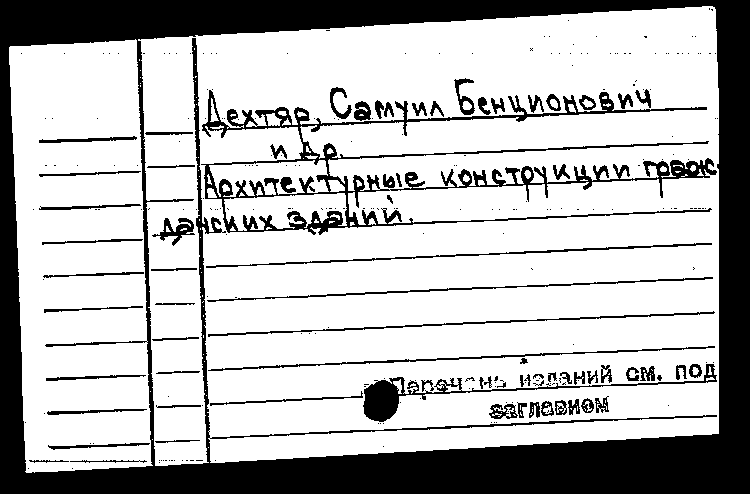 Дехтяр, Самуил Бенционович
и др.
Архитектурные конструкции граж-
данских зданий.
Перечень изданий см. под
заглавием